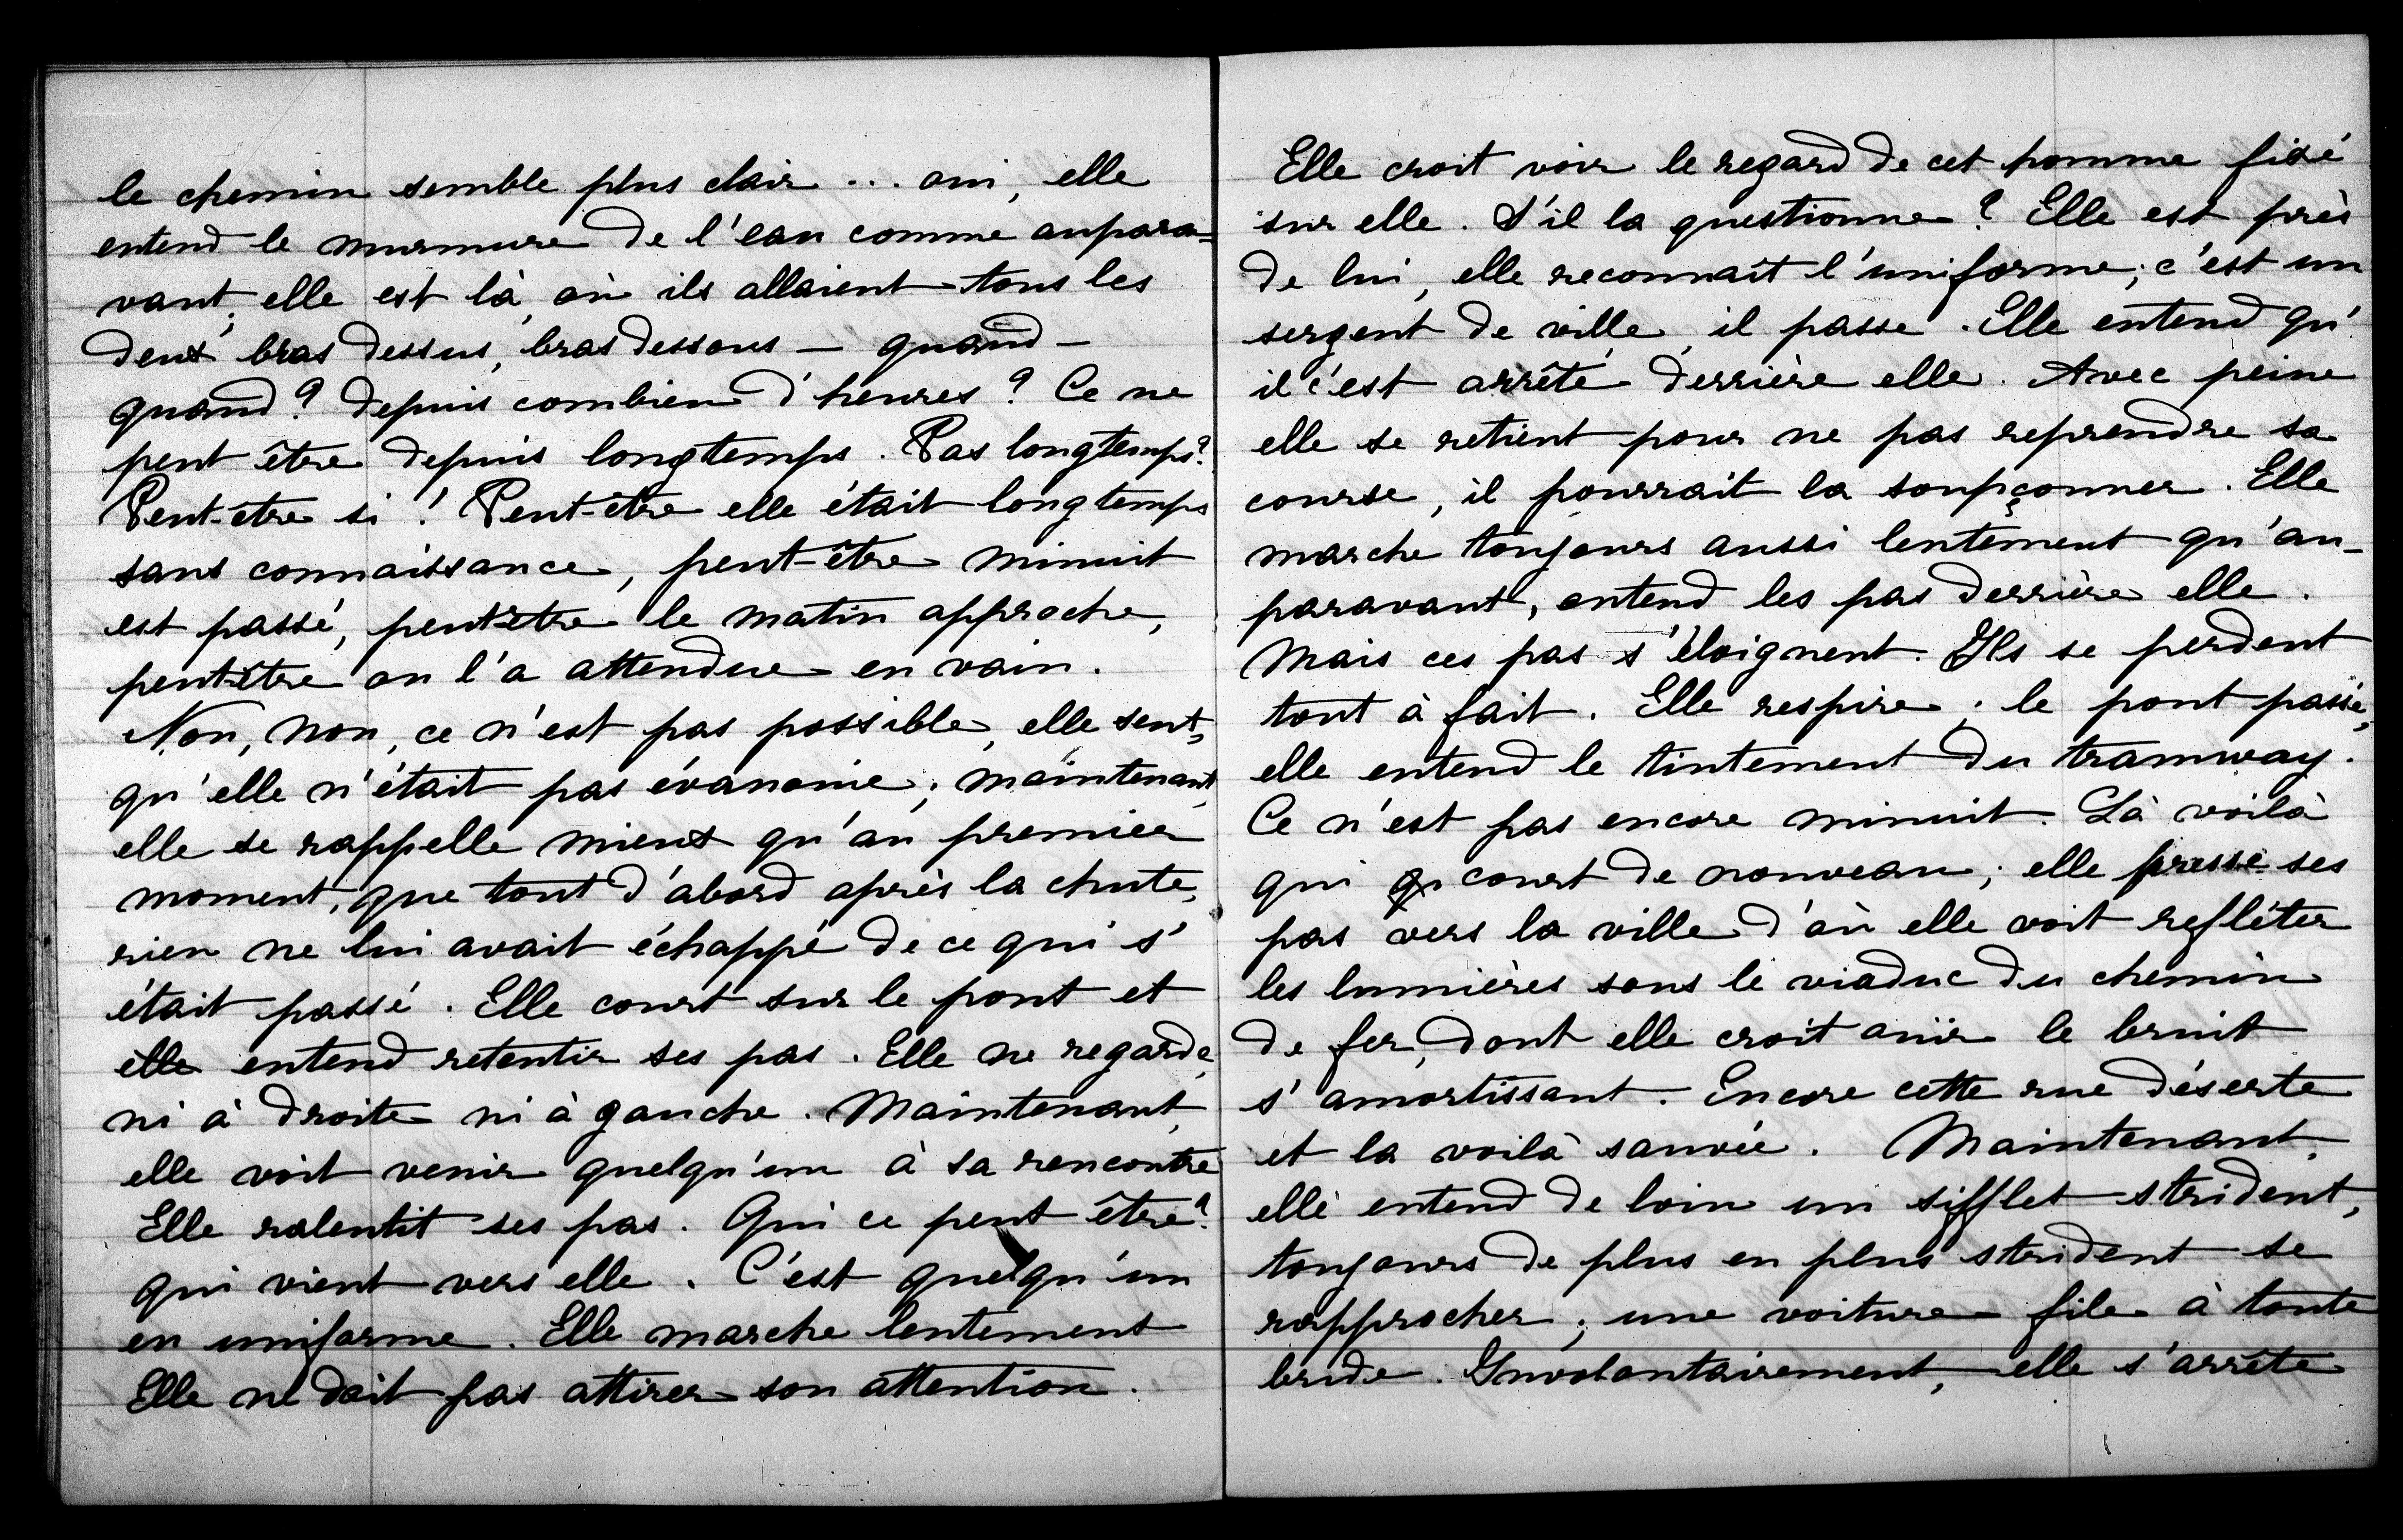 le chemin semble plus clair ... oui, elle
entend le murmure de l'eau comme aupara=
vant; elle est là, où ils allaient tous les
deux bras dessus, bras dessous — quand —
quand? depuis combien d'heures? Ce ne
peut être depuis longtemps. Pas longtemps?
Peut-être si! Peut-être elle était longtemps
sans connaissance, peut-être minuit
est passé, peut-être le matin approche,
peut-être on l'a attendue en vain.
Non, non, ce n'est pas possible, elle sent,
qu'elle n'était pas évanouie; maintenant,
elle se rappelle mieux qu'au premier
moment, que tout d'abord après la chute,
rien ne lui avait échappé de ce qui s'
était passé. Elle court sur le pont et
elle entend retentir ses pas. Elle ne regarde
ni à droite ni à gauche. Maintenant,
elle voit venir quelqu'un à sa rencontre
Elle ralentit ses pas. Qui ce peut être?
qui vient vers elle. C'est quelqu'un
en uniforme. Elle marche lentement
Elle ne doit pas attirer son attention.
Elle croit voir le regard de cet homme fixé
sur elle. S'il la questionne? Elle est près
de lui, elle reconnaît l'uniforme; c'est un
sergent de ville, il passe. Elle entend qu'
il c'est arrêté derrière elle. Avec peine
elle se retient pour ne pas reprendre sa
course, il pourrait la soupçonner. Elle
marche toujours aussi lentement qu'au-
paravant, entend les pas derrière elle.
Mais ces pas s'éloignent. Ils se perdent
tout à fait. Elle respire; le pont passé,
elle entend le tintement du tramway.
Ce n'est pas encore minuit. Là voilà
qui court de nouveau; elle presse ses
pas vers la ville d'où elle voit refléter
les lumières sous le viaduc du chemin
de fer, dont elle croit ouïr le bruit
s'amortissant. Encore cette rue déserte
et la voilà sauvée. Maintenant,
elle entend de loin un sifflet strident,
toujours de plus en plus strident se
rapprocher; une voiture file à toute
bride. Involontairement, elle s'arrête